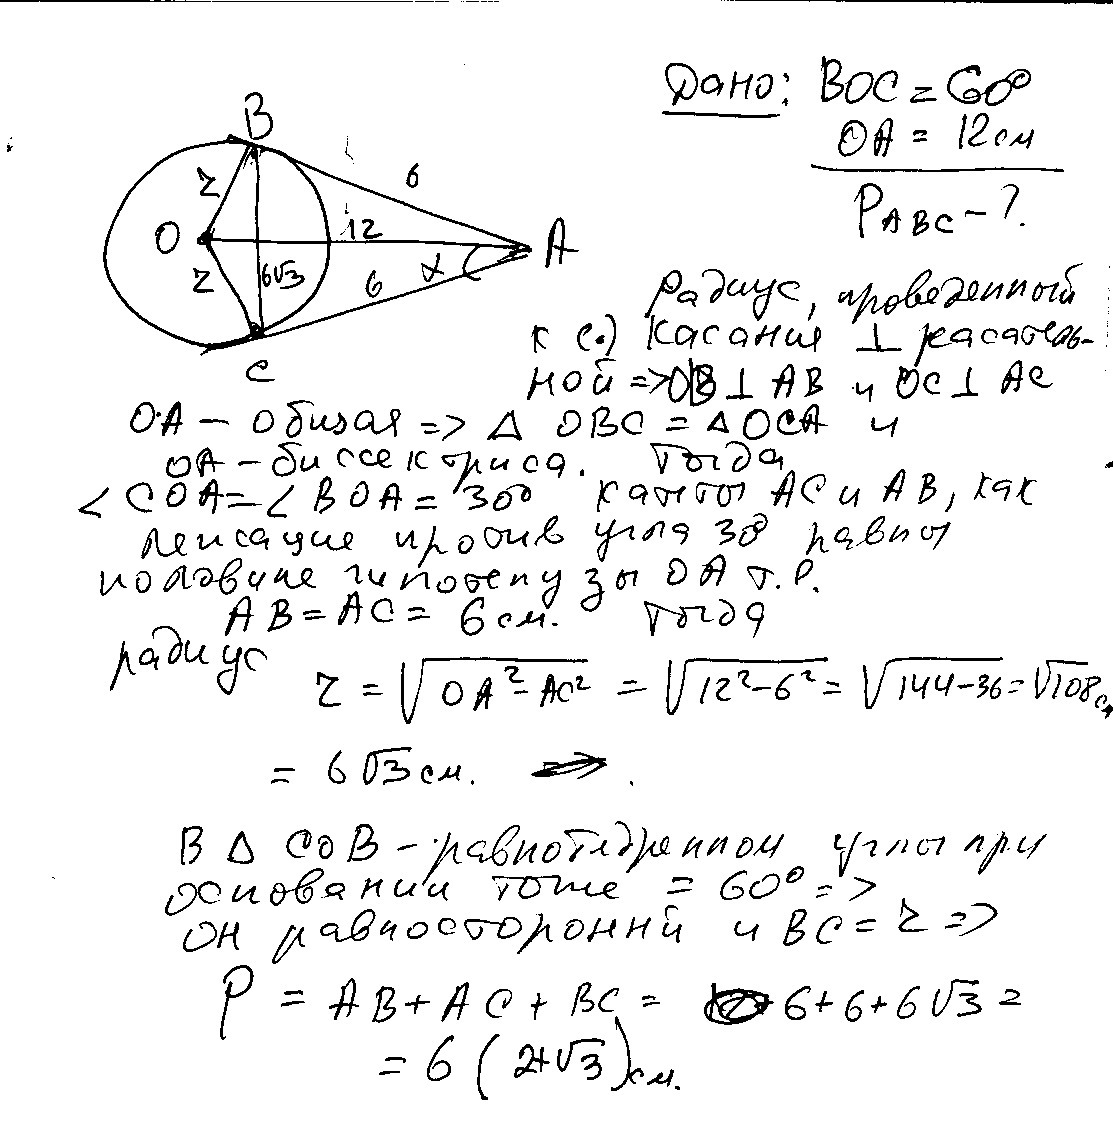 Дано: BOC = 60°
OA = 12 см
P ABC - ?
B
O
C
A
r
r
6
12
6√3
6
α
Радиус, проведенный
к (·) касания ⊥ касатель-
ной => OB ⊥ AB и OC ⊥ AC
OA - общая => Δ OBC = Δ OCA и
OA - биссектриса. Тогда
∠ COA = ∠ BOA = 30° катеты AC и AB, как
лежащие против угла 30 равны
половине гипотенузы OA т.е.
AB = AC = 6 см. Тогда
радиус
r = √OA² - AC² = √12² - 6² = √144 - 36 = √108 см
= 6√3 см. => .
В Δ COB - равнобедренном углы при
основании тоже = 60° =>
он равносторонний и BC = r =>
P = AB + AC + BC = 6 + 6 + 6√3 =
= 6 (2+√3) см.